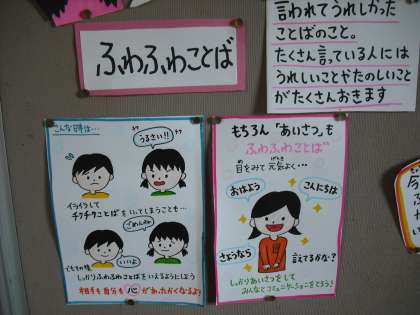 ふわふわことば
言われてうれしかった
ことばのこと。
たくさん言っている人には
うれしいことやたのしいこと
がたくさんおきます
こんな時は…
うるさい!!
イライラして
チクチクことばをいってしまうことも…
ごめんね
いいよ
でもその後
しっかりふわふわことばをいえるようにしよう
相手も自分も心があったかくなるよ!
もちろん「あいさつ」も
ふわふわことば
目をみて元気よく…
おはよう
こんにちは
さようなら
言えてるかな?
しっかりあいさつをして
みんなとコミュニケーションをとろう!